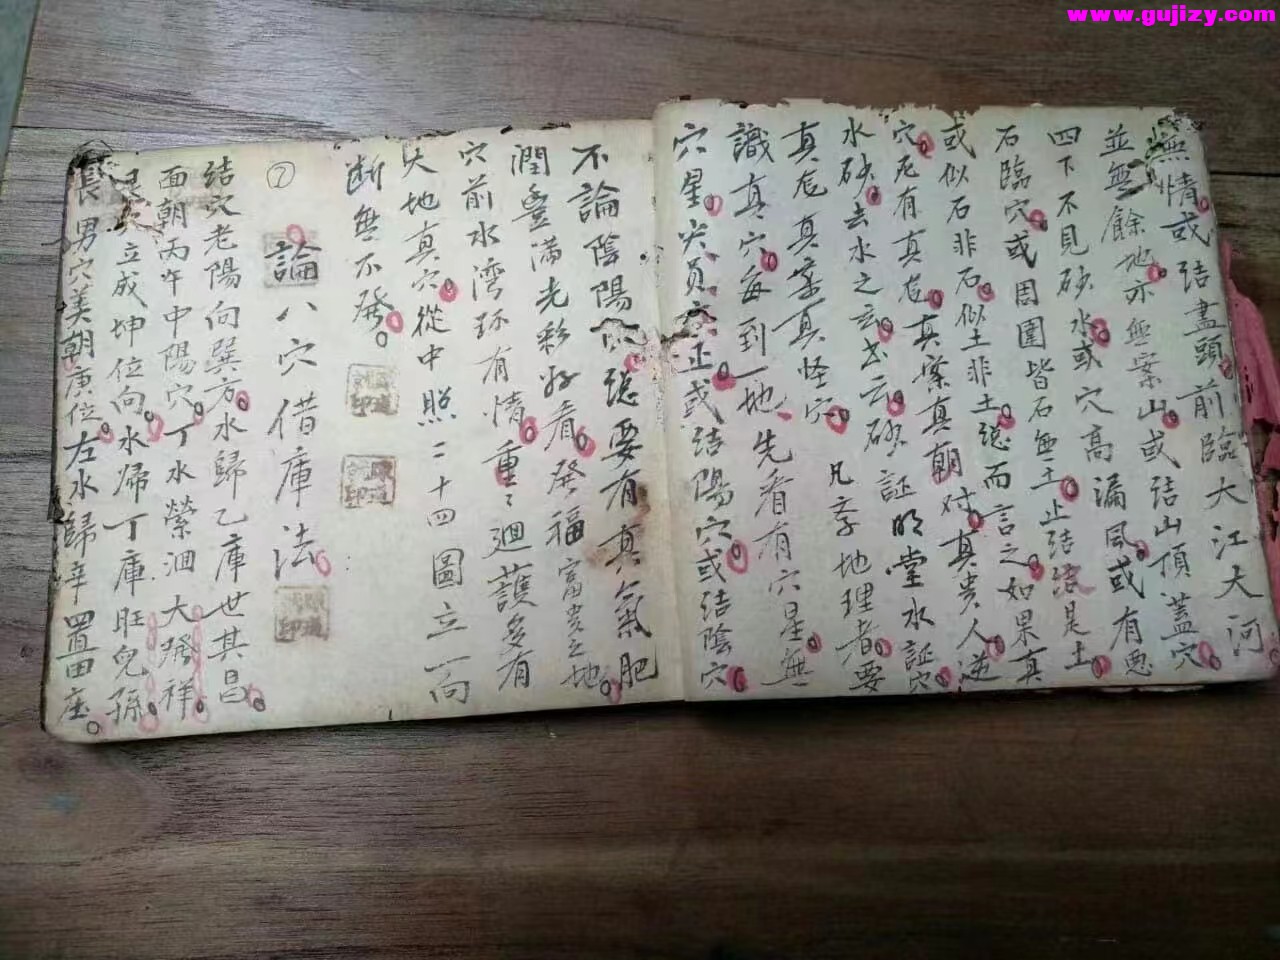 www.gujizy.com
無情或结盡頭前臨大江大河
並無餘地亦無案山或结山頂蓋穴
四下不見砂水或穴高漏風或有惡
石臨穴或周圍皆石無土止结结是土
或似石非石似土非土總而言之如果真
穴尨有真尨真案真朝对真贵人逆
水砂去水之玄玄砂証明堂水証穴
真尨真案真怪穴凡李地理者要
識真穴每到一地先看有穴星無
穴星尖員正或结陽穴或结陰穴
不論陰陽穴總要有真氣肥
潤豊滿光彩好看癸福富贵之地
穴前水湾环有情重〻迴護多有
大地真穴從中照二十四圖立一向
断無不癸
⑦
論八穴借庫法
结穴老陽向巽方水歸乙庫世其昌
面朝丙午中陽穴丁水縈洄大癸祥
立成坤位向水帰丁庫旺兒孫
長男穴美朝庚位左水歸辛置田座